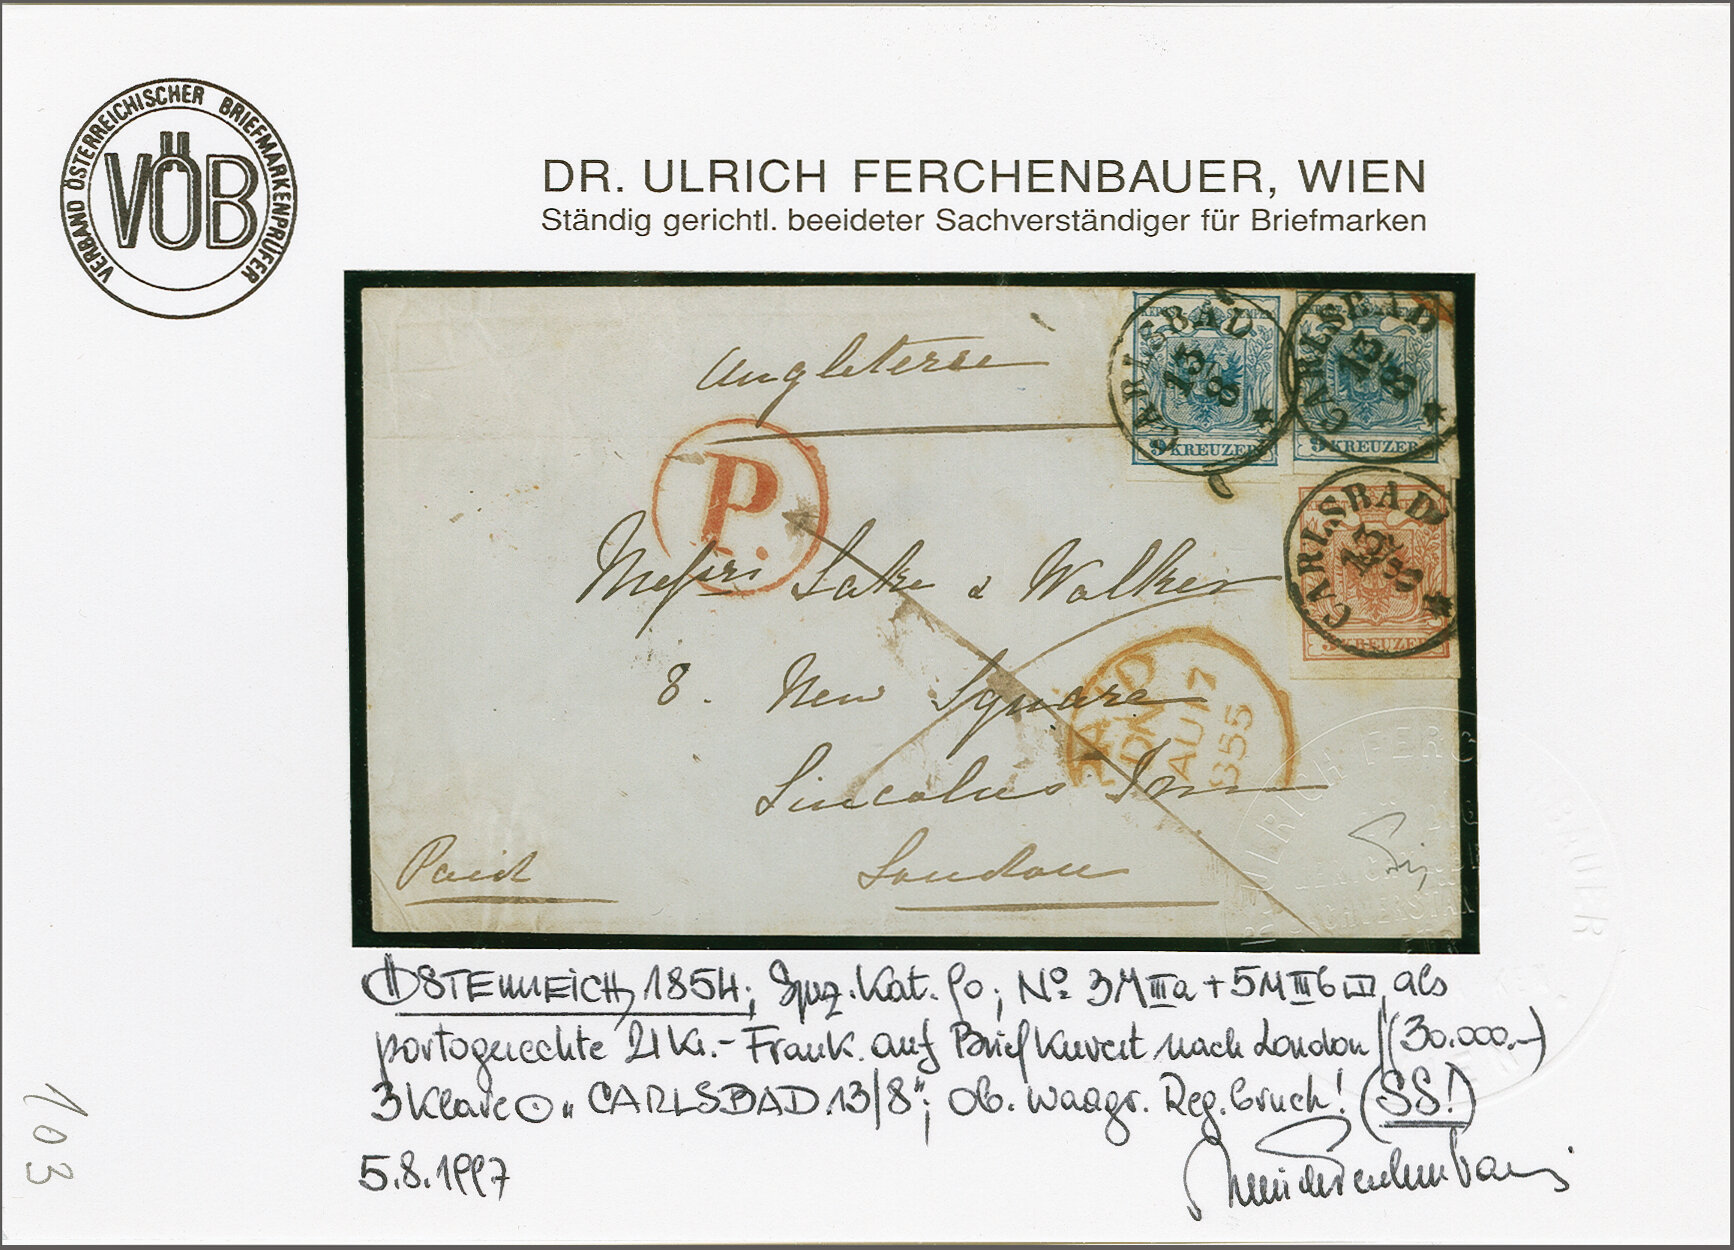 VERBAND ÖSTERREICHISCHER BRIEFMARKENPRÜFER
VÖB
DR. ULRICH FERCHENBAUER, WIEN
Ständig gerichtl. beeideter Sachverständiger für Briefmarken
Angleterre
CARLSBAD
13/8
9 KREUZER
CARLSBAD
13/8
9 KREUZER
CARLSBAD
13/8
3 KREUZER
P.
Messrs Lake & Walker
8. New Square
Lincolns Inn
London
Paid
PAID
AU 17
1855
ÖSTERREICH, 1854; Spez. Kat. No: 3MIIIa + 5MIIIb, als
portogerechte 21 Kr.- Frank. auf Briefkuvert nach London (30.000,-)
3 klare "CARLSBAD 13/8"; ob. waagr. Reg. bruch! (SS!)
5.8.1997
103